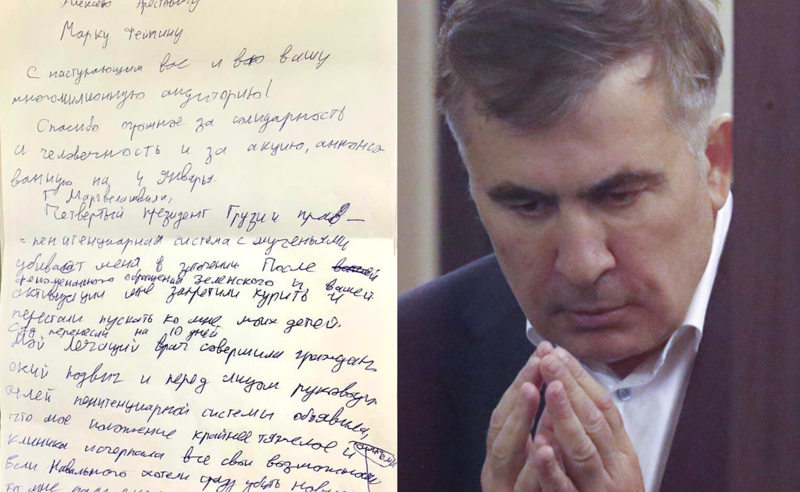 Алексею Арестовичу
Марку Фейгину
С наступающим вас и всю вашу
многомилионную аудиторию!
Спасибо огромное за солидарность
и человечность и за акцию, анонсо
ванную на 4 января.
Г. Маргвелашвили,
Четвертый президент Грузии прав –
- пенитенциарная система с мученьями
убивает меня в заточении. После
феноменального обращения Зеленского и вашей
активизации мне запретили курить и
перестали пускать ко мне моих детей.
Суд перенесли на 10 дней
Мой лечащий врач совершила граждан
ский подвиг и перед лицом руководи
телей пенитенциарной системы объявила,
что мое положение крайнее тяжелое и
клиника исчерпала все свои возможности
Если Навального хотели сразу убить
то мне